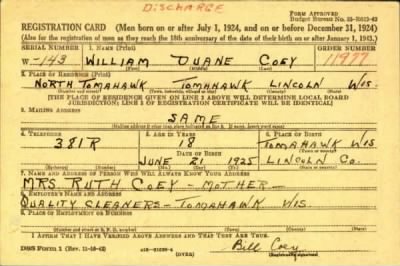 DISCHARGE
FORM APPROVED
Budget Bureau No. 33-R012-43
REGISTRATION CARD (Men born on or after July 1, 1924, and on or before December 31, 1924)
(Also for the registration of men as they reach the 18th anniversary of the date of their birth on or after January 1, 1943.)
SERIAL NUMBER 1. NAME (Print) ORDER NUMBER
W-143 WILLIAM DUANE COEY 11977
2. PLACE OF RESIDENCE (Print)
NORTH TOMAHAWK TOMAHAWK LINCOLN WIS.
[THE PLACE OF RESIDENCE GIVEN ON LINE 2 ABOVE WILL DETERMINE LOCAL BOARD
JURISDICTION; LINE 2 OF REGISTRATION CERTIFICATE WILL BE IDENTICAL]
3. MAILING ADDRESS
SAME
4. TELEPHONE 5. AGE IN YEARS 6. PLACE OF BIRTH
381R 18 TOMAHAWK WIS.
DATE OF BIRTH
JUNE 21 1925 LINCOLN CO.
7. NAME AND ADDRESS OF PERSON WHO WILL ALWAYS KNOW YOUR ADDRESS
MRS RUTH COEY - MOTHER
8. EMPLOYER'S NAME AND ADDRESS
QUALITY CLEANERS - TOMAHAWK WIS.
9. PLACE OF EMPLOYMENT OR BUSINESS
I AFFIRM THAT I HAVE VERIFIED ABOVE ANSWERS AND THAT THEY ARE TRUE.
DSS Form 1 (Rev. 11-16-42) (OVER) Bill Coey
(Registrant's signature)